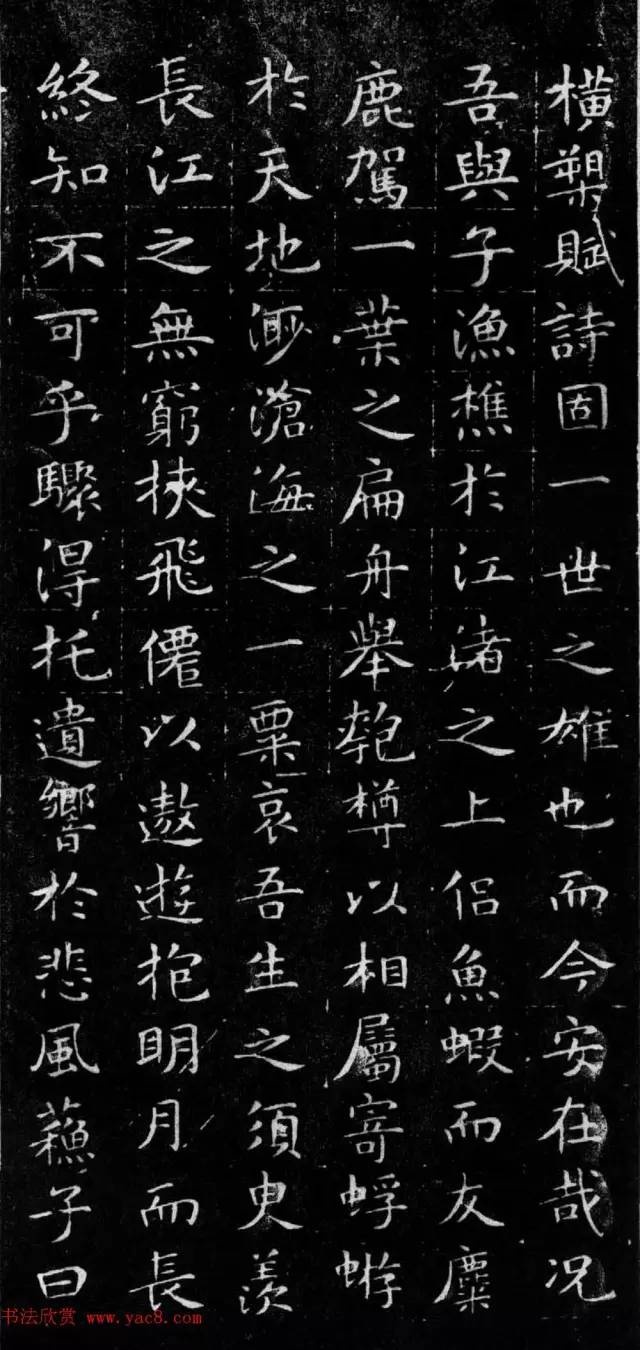 橫槊賦詩固一世之雄也而今安在哉況
吾與子漁樵於江渚之上侶魚蝦而友麋
鹿駕一葉之扁舟舉匏樽以相屬寄蜉蝣
於天地渺滄海之一粟哀吾生之須臾羨
長江之無窮挾飛僊以遨遊抱明月而長
終知不可乎驟得托遺響於悲風蘓子曰
书法欣赏 www.yac8.com